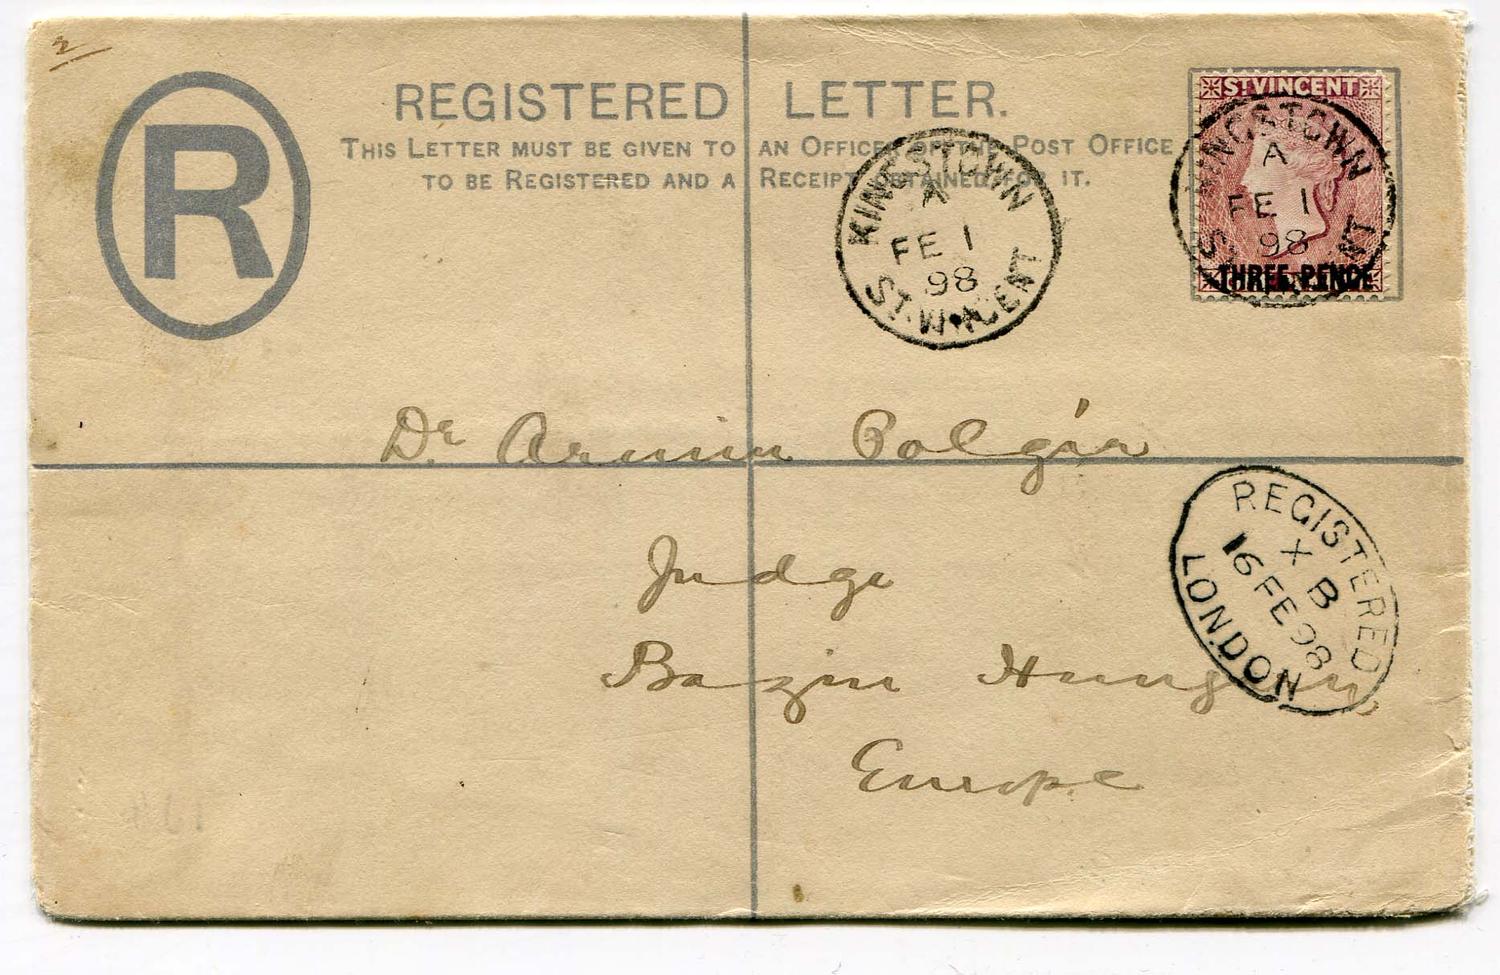 2
R
REGISTERED LETTER.
THIS LETTER MUST BE GIVEN TO AN OFFICER OF THE POST OFFICE
TO BE REGISTERED AND A RECEIPT OBTAINED FOR IT.
ST VINCENT
THREE PENCE
KINGSTOWN
A
FE 1
98
ST. VINCENT
KINGSTOWN
A
FE 1
98
ST. VINCENT
Dr Armin Polgár
Judge
Bazin Hungary
Europe
REGISTERED
X B
16 FE 98
LONDON